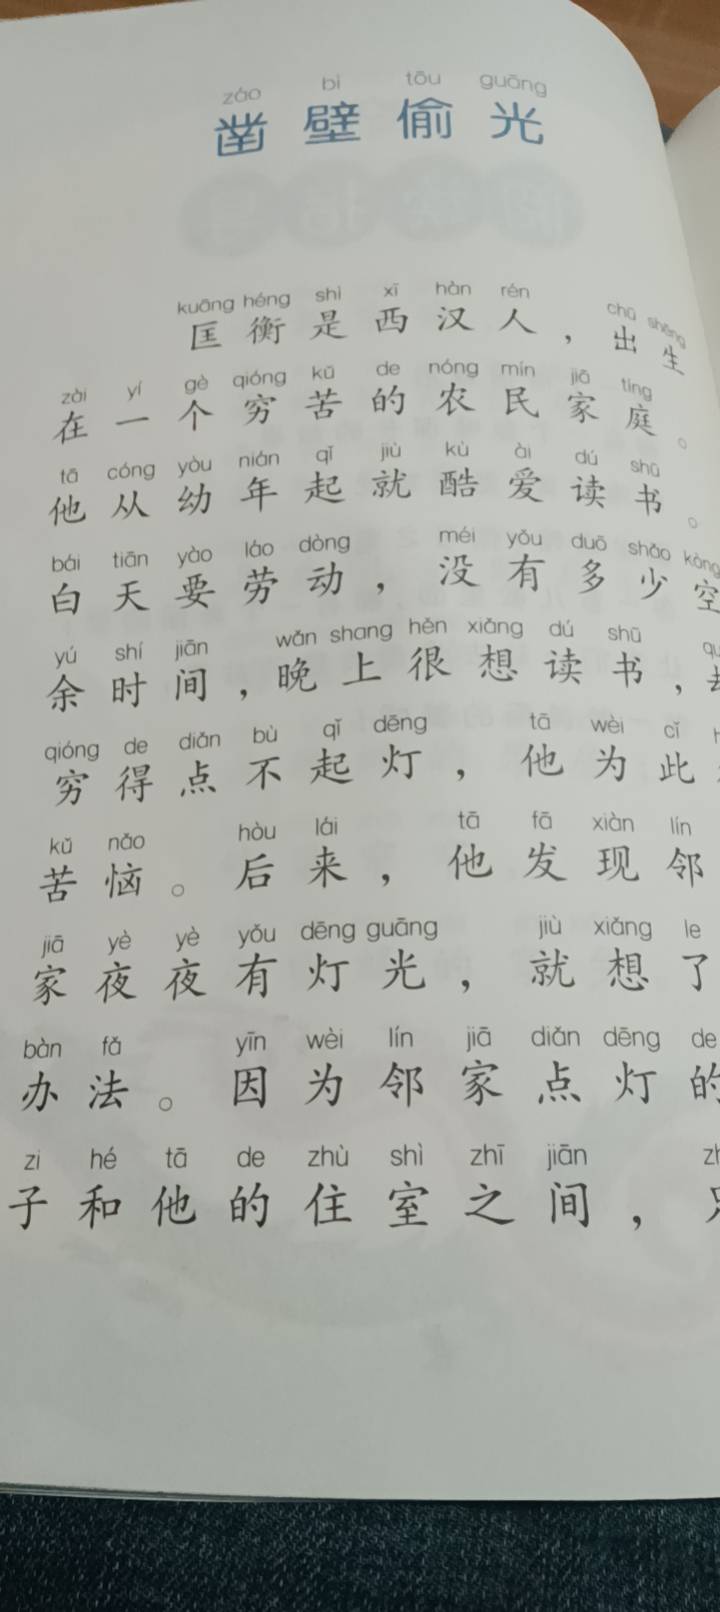 záo bì tōu guāng
凿壁偷光
kuāng héng shì xī hàn rén chū shēng
匡衡是西汉人，出生
zài yí gè qióng kǔ de nóng mín jiā tíng
在一个穷苦的农民家庭。
tā cóng yòu nián qǐ jiù kù ài dú shū
他从幼年起就酷爱读书。
bái tiān yào láo dòng méi yǒu duō shǎo kòng
白天要劳动，没有多少空
yú shí jiān wǎn shang hěn xiǎng dú shū
余时间，晚上很想读书，
qióng de diǎn bù qǐ dēng tā wèi cǐ
穷得点不起灯，他为此
kǔ nǎo hòu lái tā fā xiàn lín
苦恼。后来，他发现邻
jiā yè yè yǒu dēng guāng jiù xiǎng le
家夜夜有灯光，就想了
bàn fǎ yīn wèi lín jiā diǎn dēng de
办法。因为邻家点灯的
zi hé tā de zhù shì zhī jiān
子和他的住室之间，